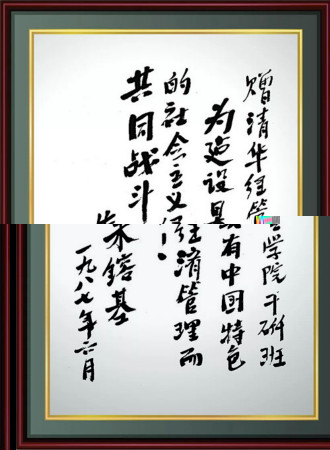 赠清华经管学院干研班
为建设具有中国特色
的社会主义经济管理而
共同战斗!
朱镕基
一九八七年六月